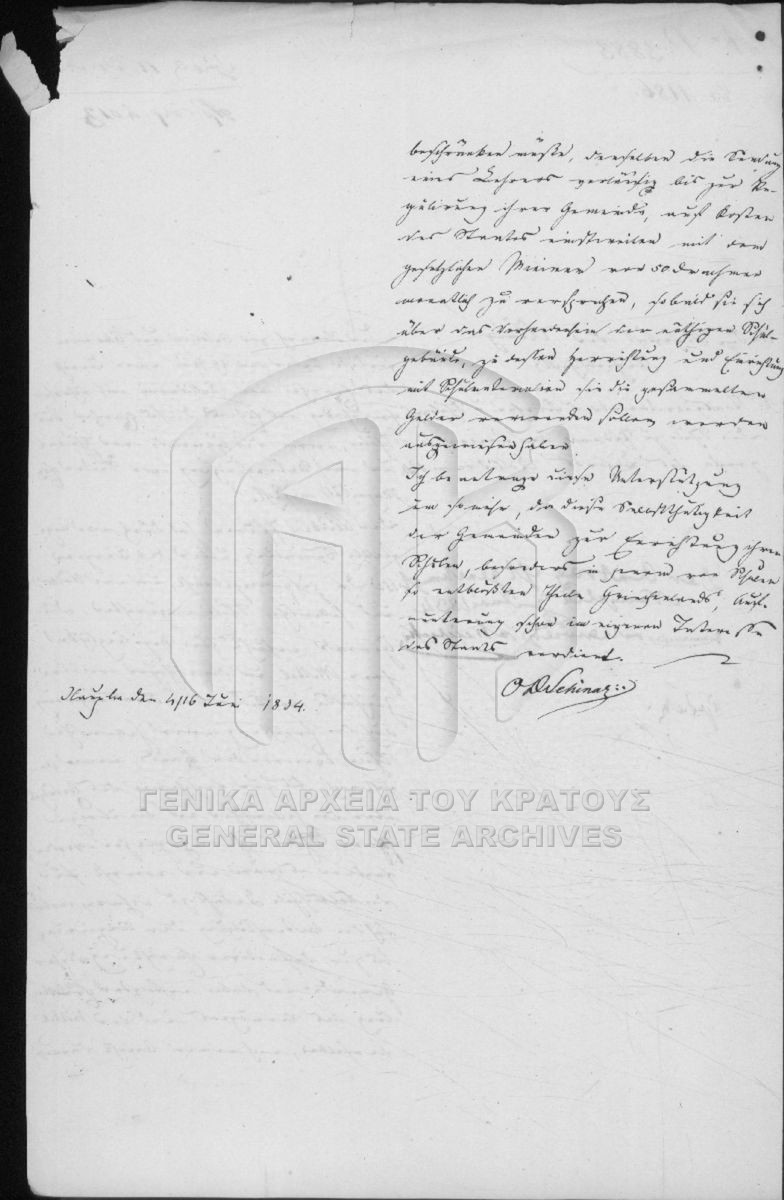 beschränken müßte, denselben die Sendung
eines Lehrers vorläufig bis zur Re-
gulirung ihrer Gemeinde, auf Kosten
des Staates einstweilen mit dem
gesetzlichen Minimum von 50 Drachmen
monatlich zu versprechen, sobald sie sich
über das Vorhandensein der nöthigen Schul-
gebäude, zu dessen Herrichtung und Einrichtung
mit Schulmaterialien sie die gesammelten
Gelder verwenden sollen werden
ausgewiesen haben.
Ich beantrage diese Unterstützung
um so mehr, da diese Selbstthätigkeit
der Gemeinden zur Errichtung ihrer
Schulen, besonders in jenem von Schulen
so entblößten Theile Griechenlands, Auf-
munterung schon im eigenen Interesse
des Staats verdient.
Nauplia den 4/16 Juni 1834.
ΓΕΝΙΚΑ ΑΡΧΕΙΑ ΤΟΥ ΚΡΑΤΟΥΣ
GENERAL STATE ARCHIVES